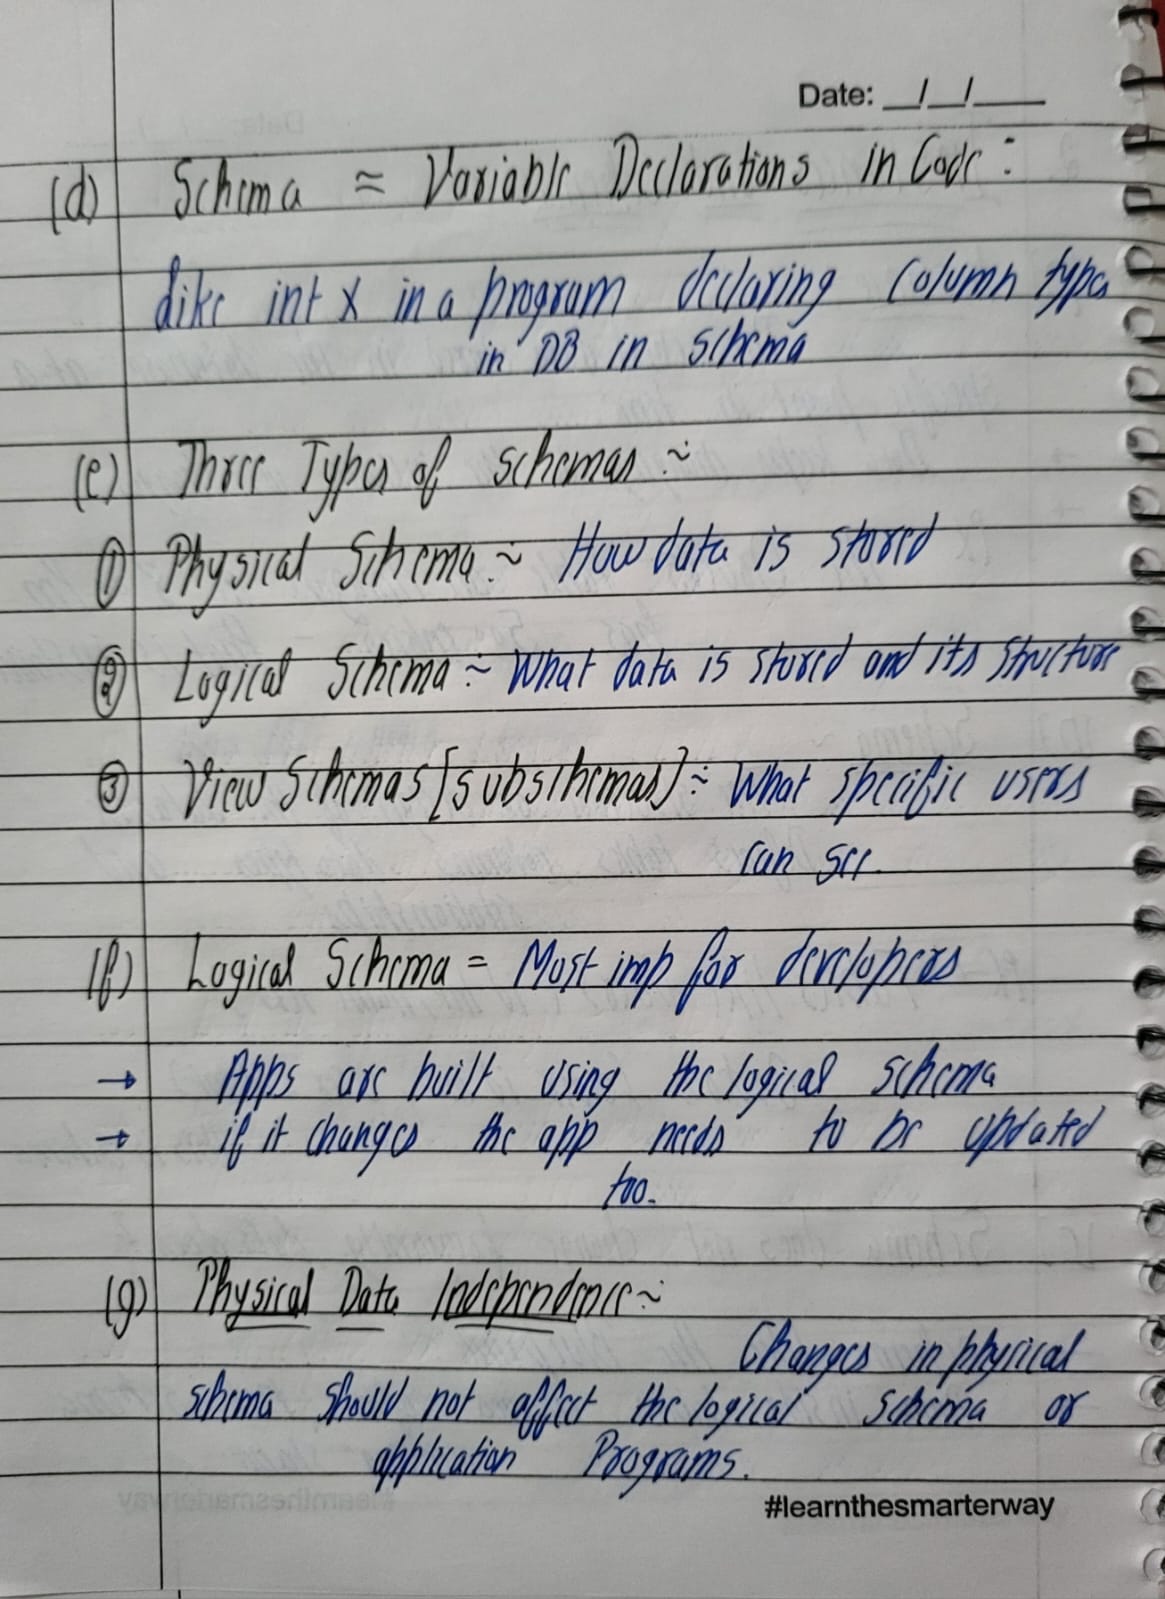 Date: __/__/____
(d) Schema ≈ Variable Declarations in Code :
like int x in a program declaring column types
in DB in schema
(e) Three Types of schemas :~
① Physical Schema :~ How data is stored
② Logical Schema :~ What data is stored and its structure
③ View Schemas [subschemas] :~ What specific users
can see.
(f) Logical Schema = Most imp for developers
→ Apps are built using the logical schema
→ if it changes the app needs to be updated
too.
(g) Physical Data Independence :~
Changes in physical
schema should not affect the logical schema or
application Programs.
#learnthesmarterway